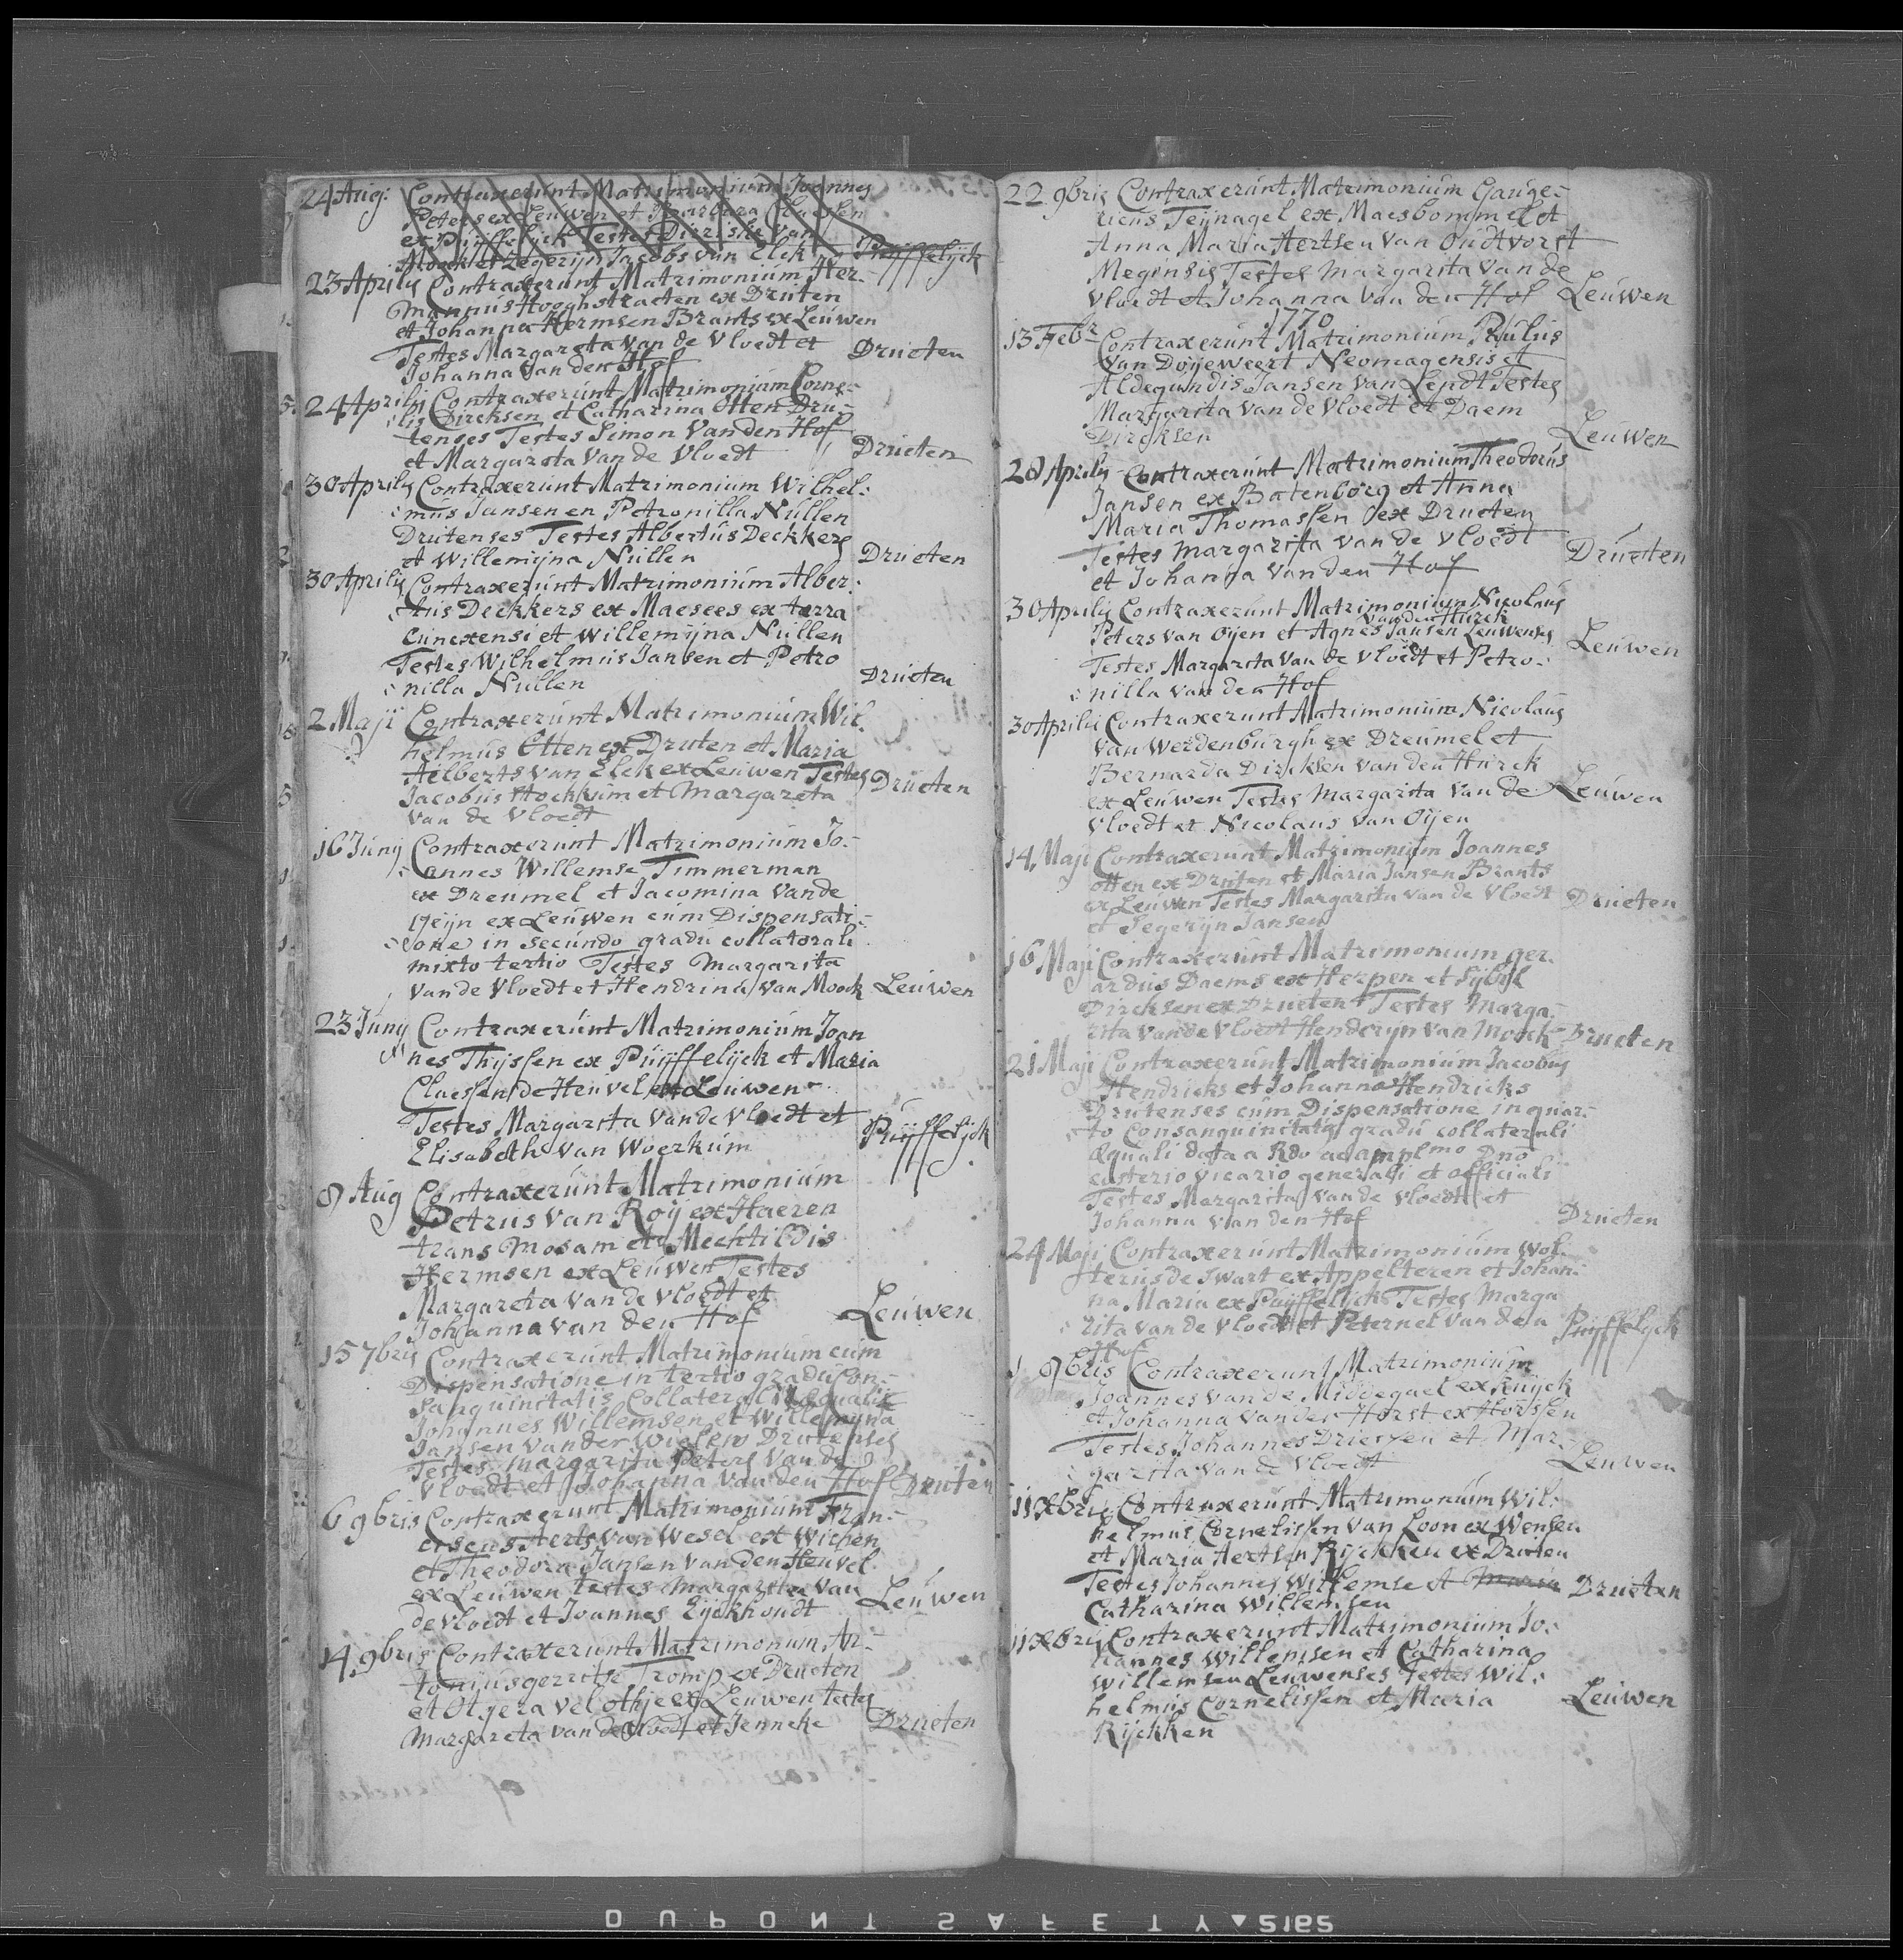 24 Aug: Contraxerunt Matrimonium Joannes
Peters ex Leuwen et Barbara Claessen
ex Puijffelijck Testes Dieriske van
Moock et Zegerijn Jacobs van Elck Puijffelijck
23 Aprilis Contraxerunt Matrimonium Her-
mannus Hooghstraeten ex Druten
et Johanna Hermsen Brants ex Leuwen
Testes Margareta van de Vloedt et Drueten
Johanna van den Hof
24 Aprilis Contraxerunt Matrimonium Corne-
lis Dircksen et Catharina Otten Dru-
tenses Testes Simon Van den Hof
et Margarita Van de Vloedt Drueten
30 Aprilis Contraxerunt Matrimonium Wilhel:
mus Jansen en Petronilla Nullen
Drutenses Testes Albertus Deckkers
et Willemijna Nullen Drueten
30 Aprilis Contraxerunt Matrimonium Alber:
tus Deckkers ex Maesees ex terra
Cuinexensi et Willemijna Nullen
Testes Wilhelmus Jansen et Petro
nilla Nullen Drueten
2 Maji Contraxerunt Matrimonium Wil:
helmus Otten ex Druten et Maria
Aelberts van Elck ex Leuwen Testes Drueten
Jacobus Hockkum et Margareta
van de Vloedt
16 Junij Contraxerunt Matrimonium Jo-
annes Willemse Timmerman
ex Dreumel et Jacomina vande
Geijn ex Leuwen cum Dispensati:
one in secundo gradu collatorali
mixto tertio Testes Margarita
van de Vloedt et Hendrina van Moock Leuwen
23 Junij Contraxerunt Matrimonium Joan
nes Thijssen ex Puijffelijck et Maria
Claessen de Heuvel ex Leuwen
Testes Margarita van de Vloedt et Puijffelijck
Elisabeth van Woerkum
8 Aug Contraxerunt Matrimonium
Petrus van Roij ex Haeren
trans Mosam et Mechtildis
Hermsen ex Leuwen Testes
Margareta van de Vloedt et
Johanna van den Hof Leuwen
15 7bris Contraxerunt Matrimonium cum
Dispensatione in tertio gradu Con-
sanguinitatis Collaterali aequali
Johannes Willemsen et Willemijna
Jansen van der Wielen Drutenses
Testes Margarita Peters van de
Vloedt et Johanna van den Hof Druten
6 9bris Contraxerunt Matrimonium Fran-
ciscus Aerts van Wesel ex Wichen
et Theodora Jansen van den Heuvel
ex Leuwen testes Margarita van Leuwen
de Vloedt et Joannes Eijckhoudt
14 9bris Contraxerunt Matrimonum An-
tonijus gerritse Tromp ex Drueten
et Otgera vel othje ex Leuwen testes
Margareta van de Vloedt et Jenneke Drueten
22 9bris Contraxerunt Matrimonium Gauge-
ricus Teijnagel ex Maesbommel et
Anna Maria Aertsen van Oudtvorst
Megensis Testes Margarita van de
Vloedt et Johanna van den Hof Leuwen
1770
13 Febr Contraxerunt Matrimonium Paulus
van Doijeweert Neomagensis et
Aldegundis Jansen van Lendt Testes
Margarita van de Vloedt et Daem
Dircksen Leuwen
28 Aprilis Contraxerunt Matrimonium Theodorus
Jansen ex Batenborg et Anna
Maria Thomassen ex Drueten
Testes Margarita van de Vloedt
et Johanna van den Hof Drueten
30 Aprilis Contraxerunt Matrimonium Nicolaus
van den Hurck
Peters van Oijen et Agnes Jansen Leuwenses
Testes Margarita van de Vloedt et Petro- Leuwen
nilla van den Hof
30 Aprilis Contraxerunt Matrimonium Nicolaus
van Werdenburgh ex Dreumel et
Bernarda Dircksen van den Hurck
ex Leuwen Testes Margarita van de Leuwen
Vloedt et Nicolaus van Oijen
14 Maji Contraxerunt Matrimonium Joannes
otten ex Druten et Maria Jansen Brants
ex Leuwen Testes Margarita van de Vloedt Drueten
et Segerijn Jansen
16 Maji Contraxerunt Matrimonium ger-
ardus Daems ex Herpen et Sijbel
Dircksen ex Drueten Testes Marga-
rita van de Vloedt Henderijn van Moock Drueten
21 Maji Contraxerunt Matrimonium Jacobus
Hendricks et Johanna Hendricks
Drutenses cum Dispensatione in quar-
to Consanguinitatis gradu collaterali
Aequali data a Rdo ac amplmo Dno
custerio vicario generali et officiali
Testes Margarita van de Vloedt et
Johanna van den Hof Drueten
24 Maji Contraxerunt Matrimonium Wol-
terus de Swart ex Appelteren et Johan-
na Maria ex Puijffelijck Testes Marga
rita van de Vloedt et Peternel van den Puijffelijck
Hof
1 9bris Contraxerunt Matrimonium
Joannes van de Middegael ex Kuijck
et Johanna van der Horst ex Horssen
Testes Johannes Driessen et Mar-
garita van de Vloedt Leuwen
11 Xbris Contraxerunt Matrimonium Wil:
helmus Cornelissen van Loon ex Wensen
et Maria Aertsen Rijckken ex Druten
Testes Johannes Willemse et Maria Drueten
Catharina Willemsen
11 Xbris Contraxerunt Matrimonium Jo:
hannes Willemsen et Catharina
Willemsen Leuwenses Testes Wil:
helmus Cornelissen et Maria Leuwen
Rijckken
DUPONT SAFETY 2165